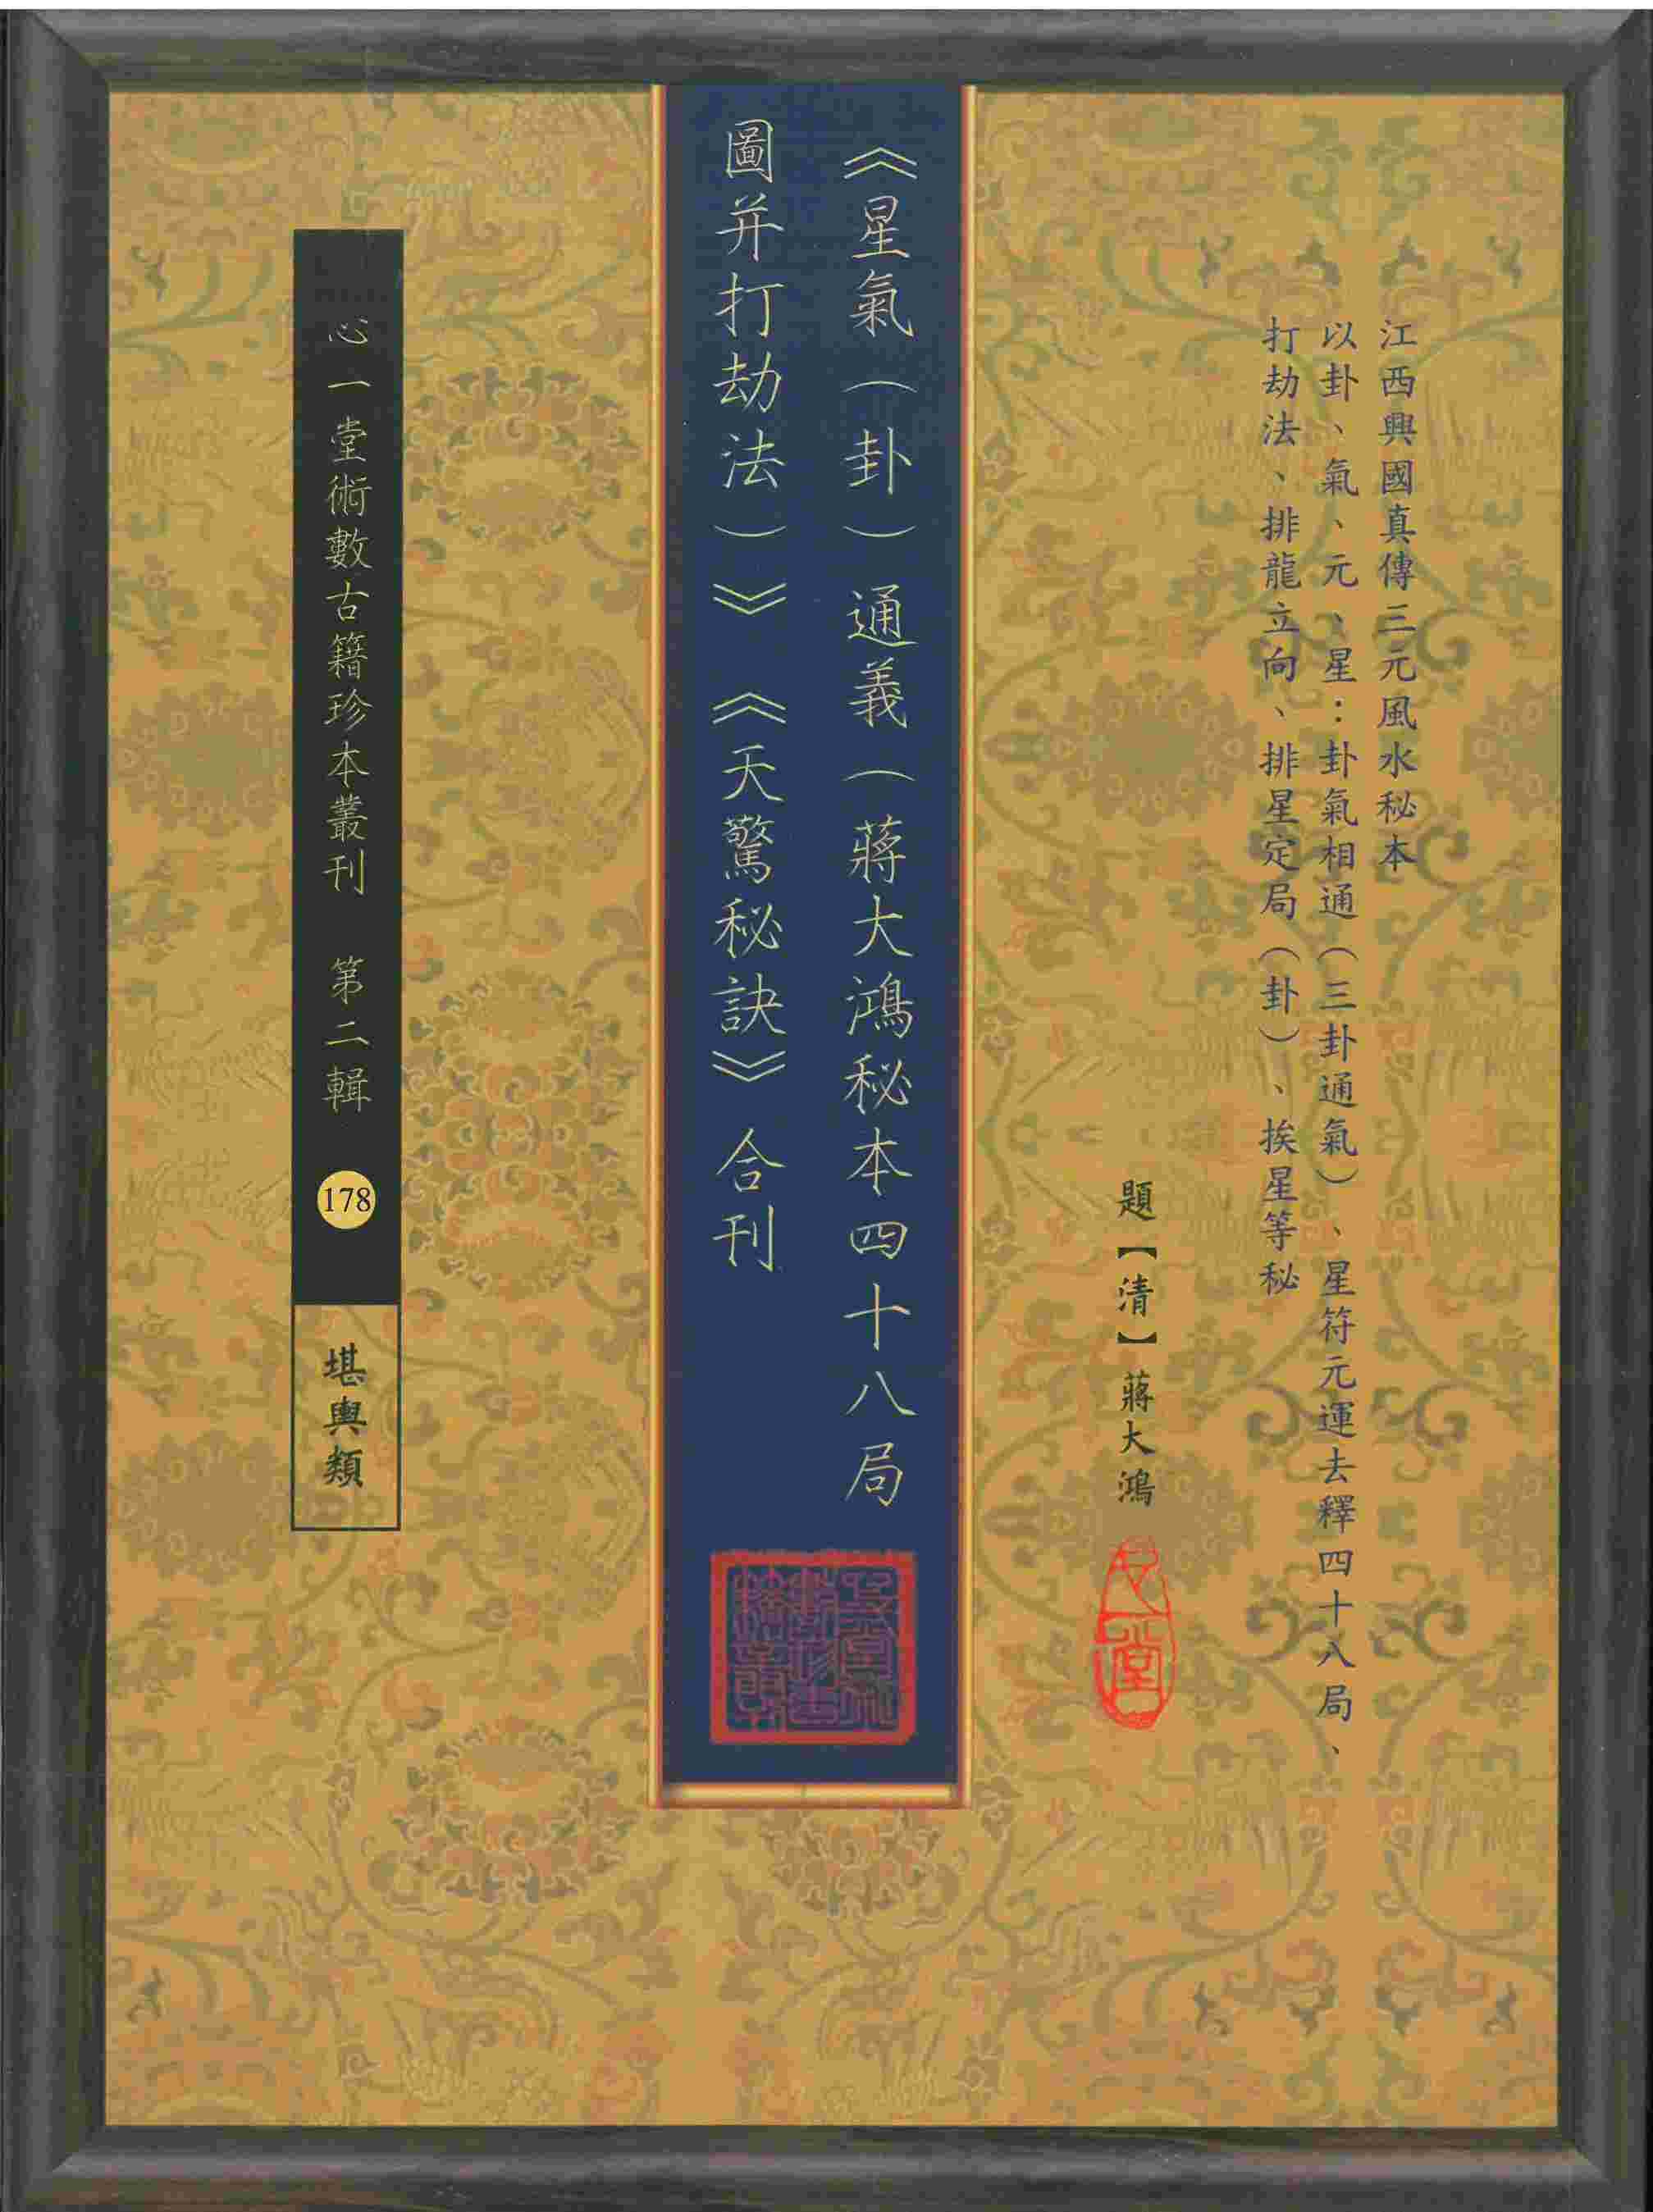 江西興國真傳三元風水秘本
以卦、氣、元、星：卦氣相通（三卦通氣）、星符元運去釋四十八局、
打劫法、排龍立向、排星定局（卦）、挨星等秘
題【清】蔣大鴻
《星氣（卦）通義（蔣大鴻秘本四十八局
圖并打劫法）》《天驚秘訣》合刊
心一堂術數古籍珍本叢刊 第二輯
178
堪輿類